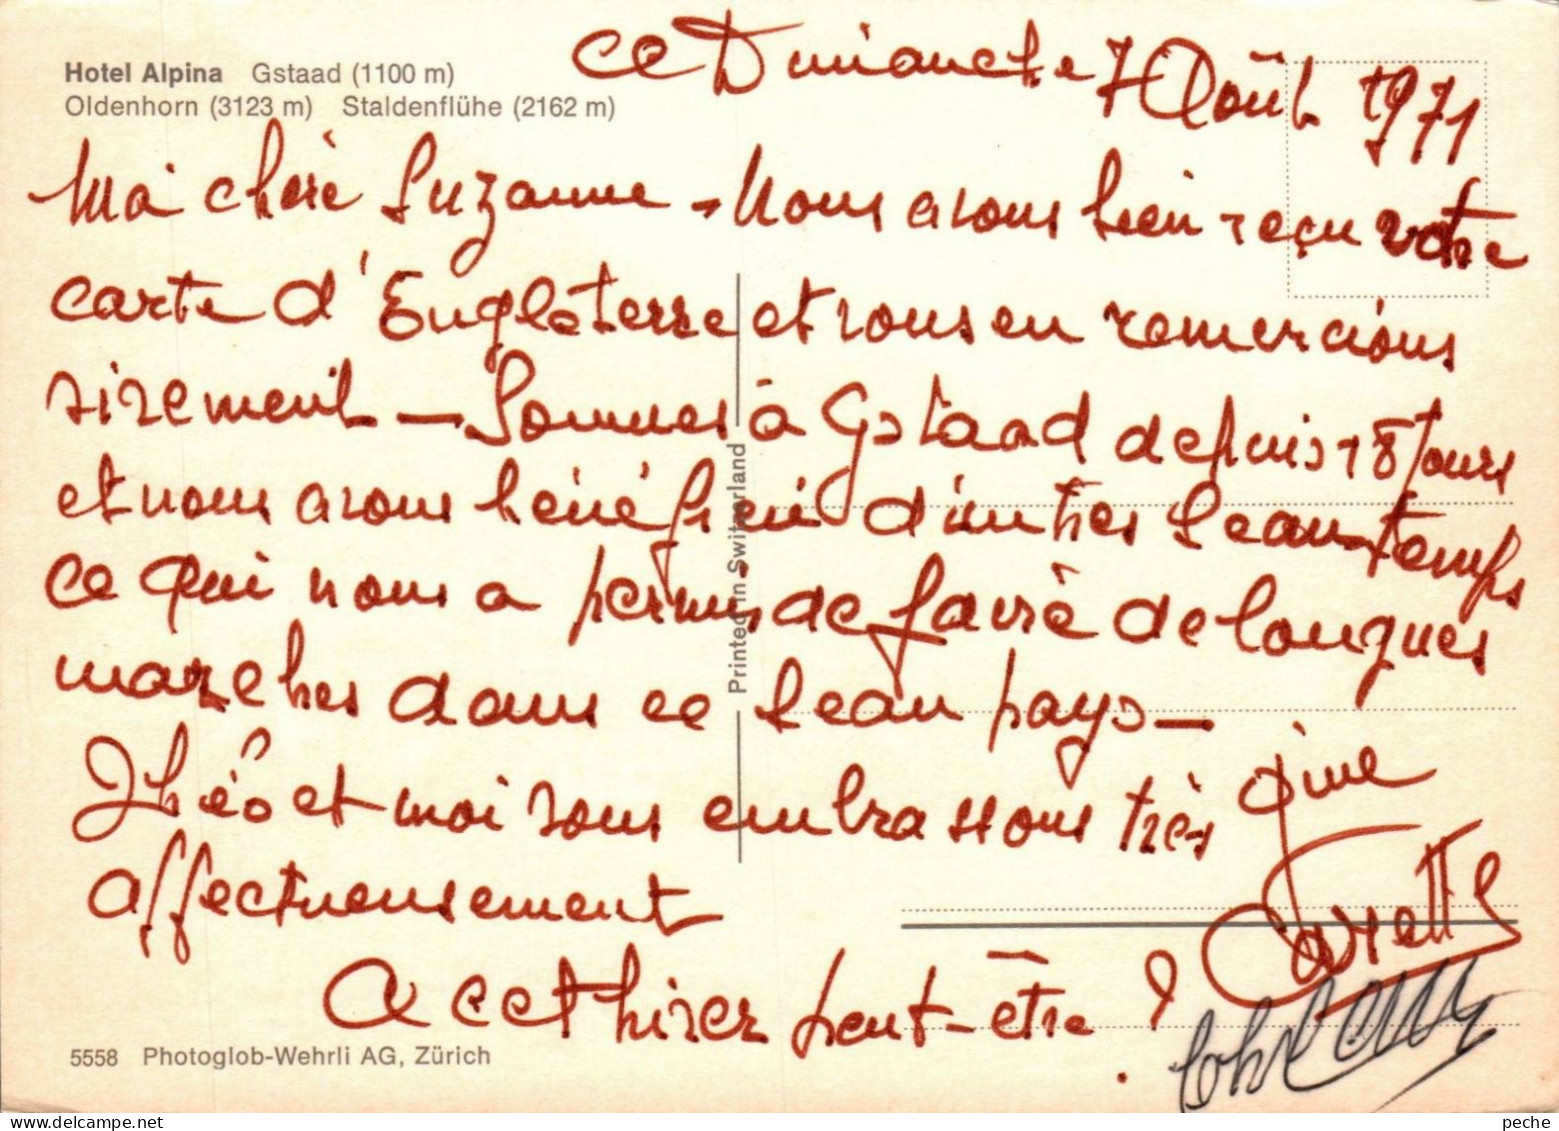 Hotel Alpina Gstaad (1100 m)
Oldenhorn (3123 m) Staldenflühe (2162 m)
ce Dimanche 7 Août 1971
Ma chère Suzanne - Nous avons bien reçu votre
carte d'Engleterre et vous en remercions
vivement - Sommes à Gstaad depuis 18 jours
et nous avons bénéficié d'un très beau temps
ce qui nous a permis de faire de longues
marches dans ce beau pays -
Théo et moi vous embrassons très
affectueusement
A cet hiver peut-être !
Printed in Switzerland
5558 Photoglob-Wehrli AG, Zürich
peche